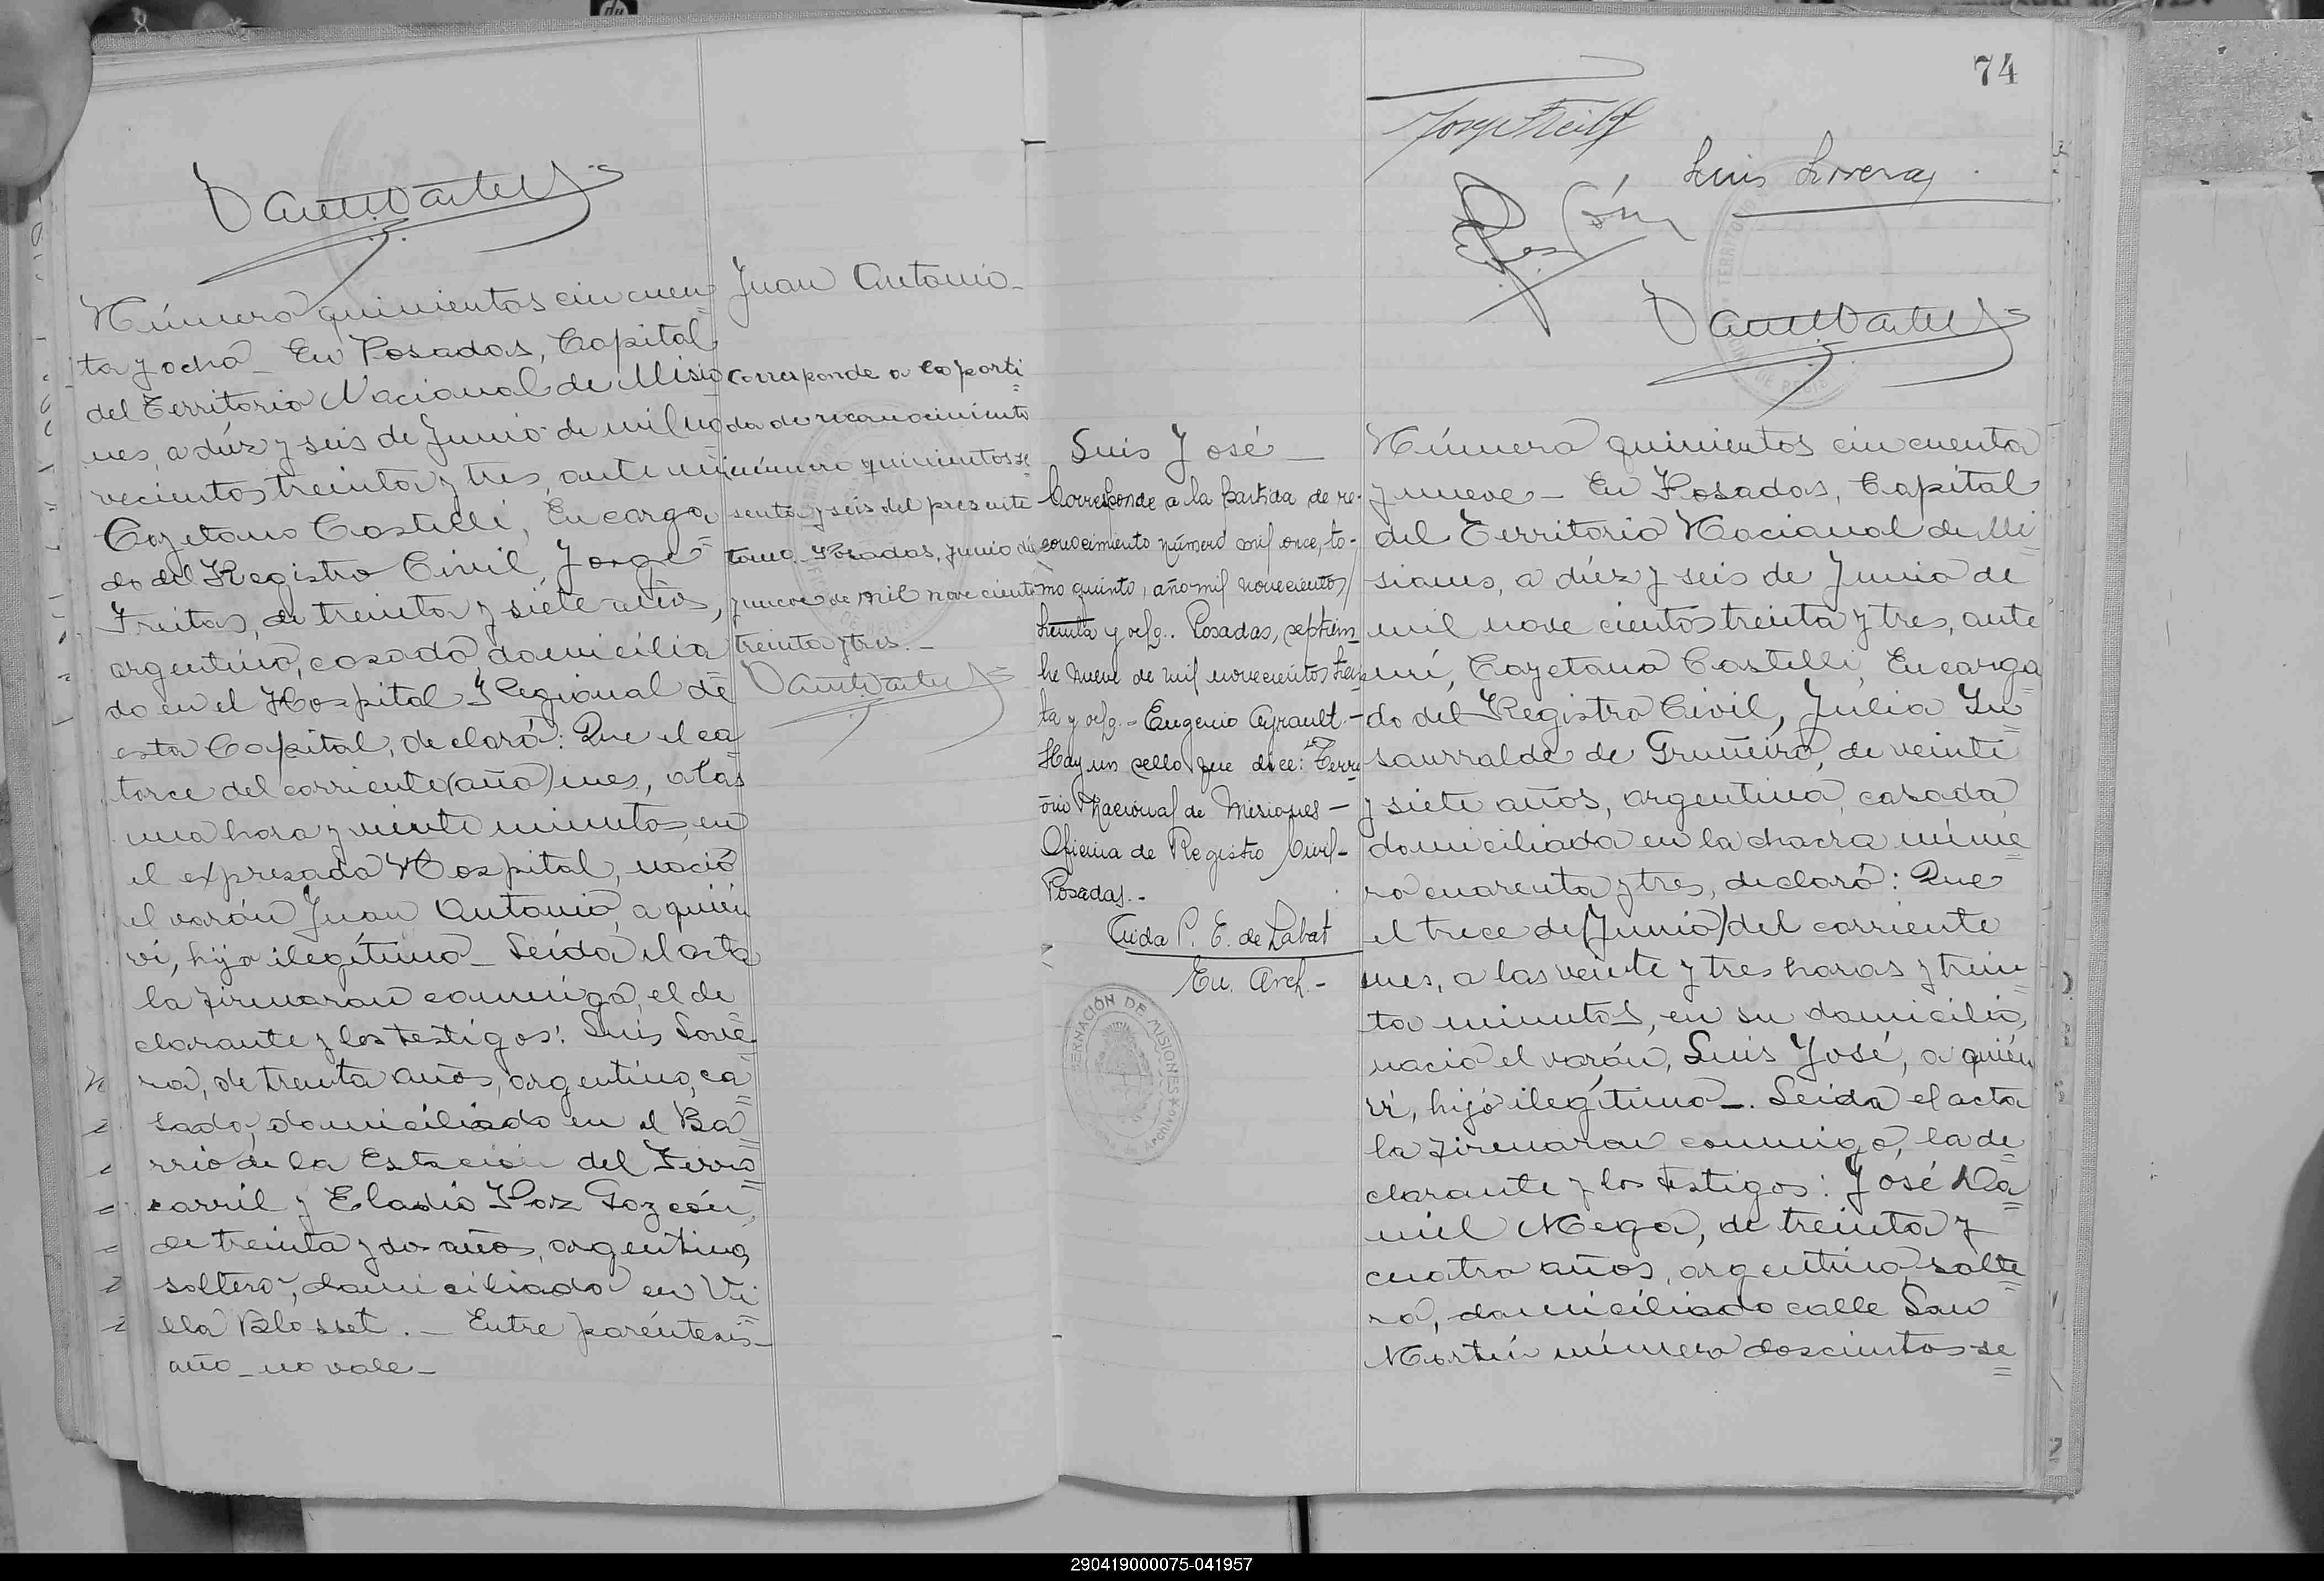 Número quinientos cincuen
ta y ocho_ En Posadas, Capital
del Territorio Nacional de Misio
nes, a diéz y seis de Junio de mil no
vecientos treinta y tres, ante mí
Cayetano Castelli, Encarga
do del Registro Civil, Jorge
Freitas, de treinta y siete años,
argentino, casado, domicilia
do en el Hospital Regional de
esta Capital, declaró: Que el ca
torce del corriente (año) mes, a las
una hora y veinte minutos, en
el expresado Hospital, nació
el varón Juan Antonio, a quién
ví, hijo ilegítimo_ Leída el acta
la firmaron conmigo, el de
clarante y los testigos: Luis Love
ra, de treinta años, argentino, ca
sado, domiciliado en el Ba
rrio de la Estación del Ferro
carril y Eladio Paz Gozcón,
de treinta y dos años, argentino,
soltero, domiciliado en Vi
lla Blosset._ Entre paréntesis_
año_no vale_
Juan Antonio_
Corresponde a la parti
da de reconocimiento
número quinientos se
senta y seis del presente
tomo. Posadas, junio diéz
y nueve de mil novecientos
treinta y tres._
74
Luis Lovera
Luis José_
Corresponde a la partida de re-
conocimiento número mil once, to-
mo quinto, año mil novecientos
treinta y ocho. Posadas, septiem
bre nueve de mil novecientos trein
ta y ocho.- Eugenio Ayrault.-
Hay un sello que dice: "Territ
orio Nacional de Misiones-
Oficina de Registro Civil-
Posadas.-
Aida P. E. de Labat
En. Arch.-
GOBERNACIÓN DE MISIONES
Número quinientos cincuenta
y nueve_ En Posadas, Capital
del Territorio Nacional de Mi
siones, a diéz y seis de Junio de
mil novecientos treinta y tres, ante
mí, Cayetano Castelli, Encarga
do del Registro Civil, Julia In
saurralde de Gruñeiro, de veinte
y siete años, argentina, casada,
domiciliada en la chacra núme
ro cuarenta y tres, declaró: Que
el trece de (Junio) del corriente
mes, a las veinte y tres horas y trein
ta minutos, en su domicilio,
nació el varón, Luis José, a quién
ví, hijo ilegítimo_. Leída el acta
la firmaron conmigo, la de
clarante y los testigos: José Da
niel Mega, de treinta y
cuatro años, argentino, solte
ro, domiciliado calle San
Martín número doscientos se
290419000075-041957